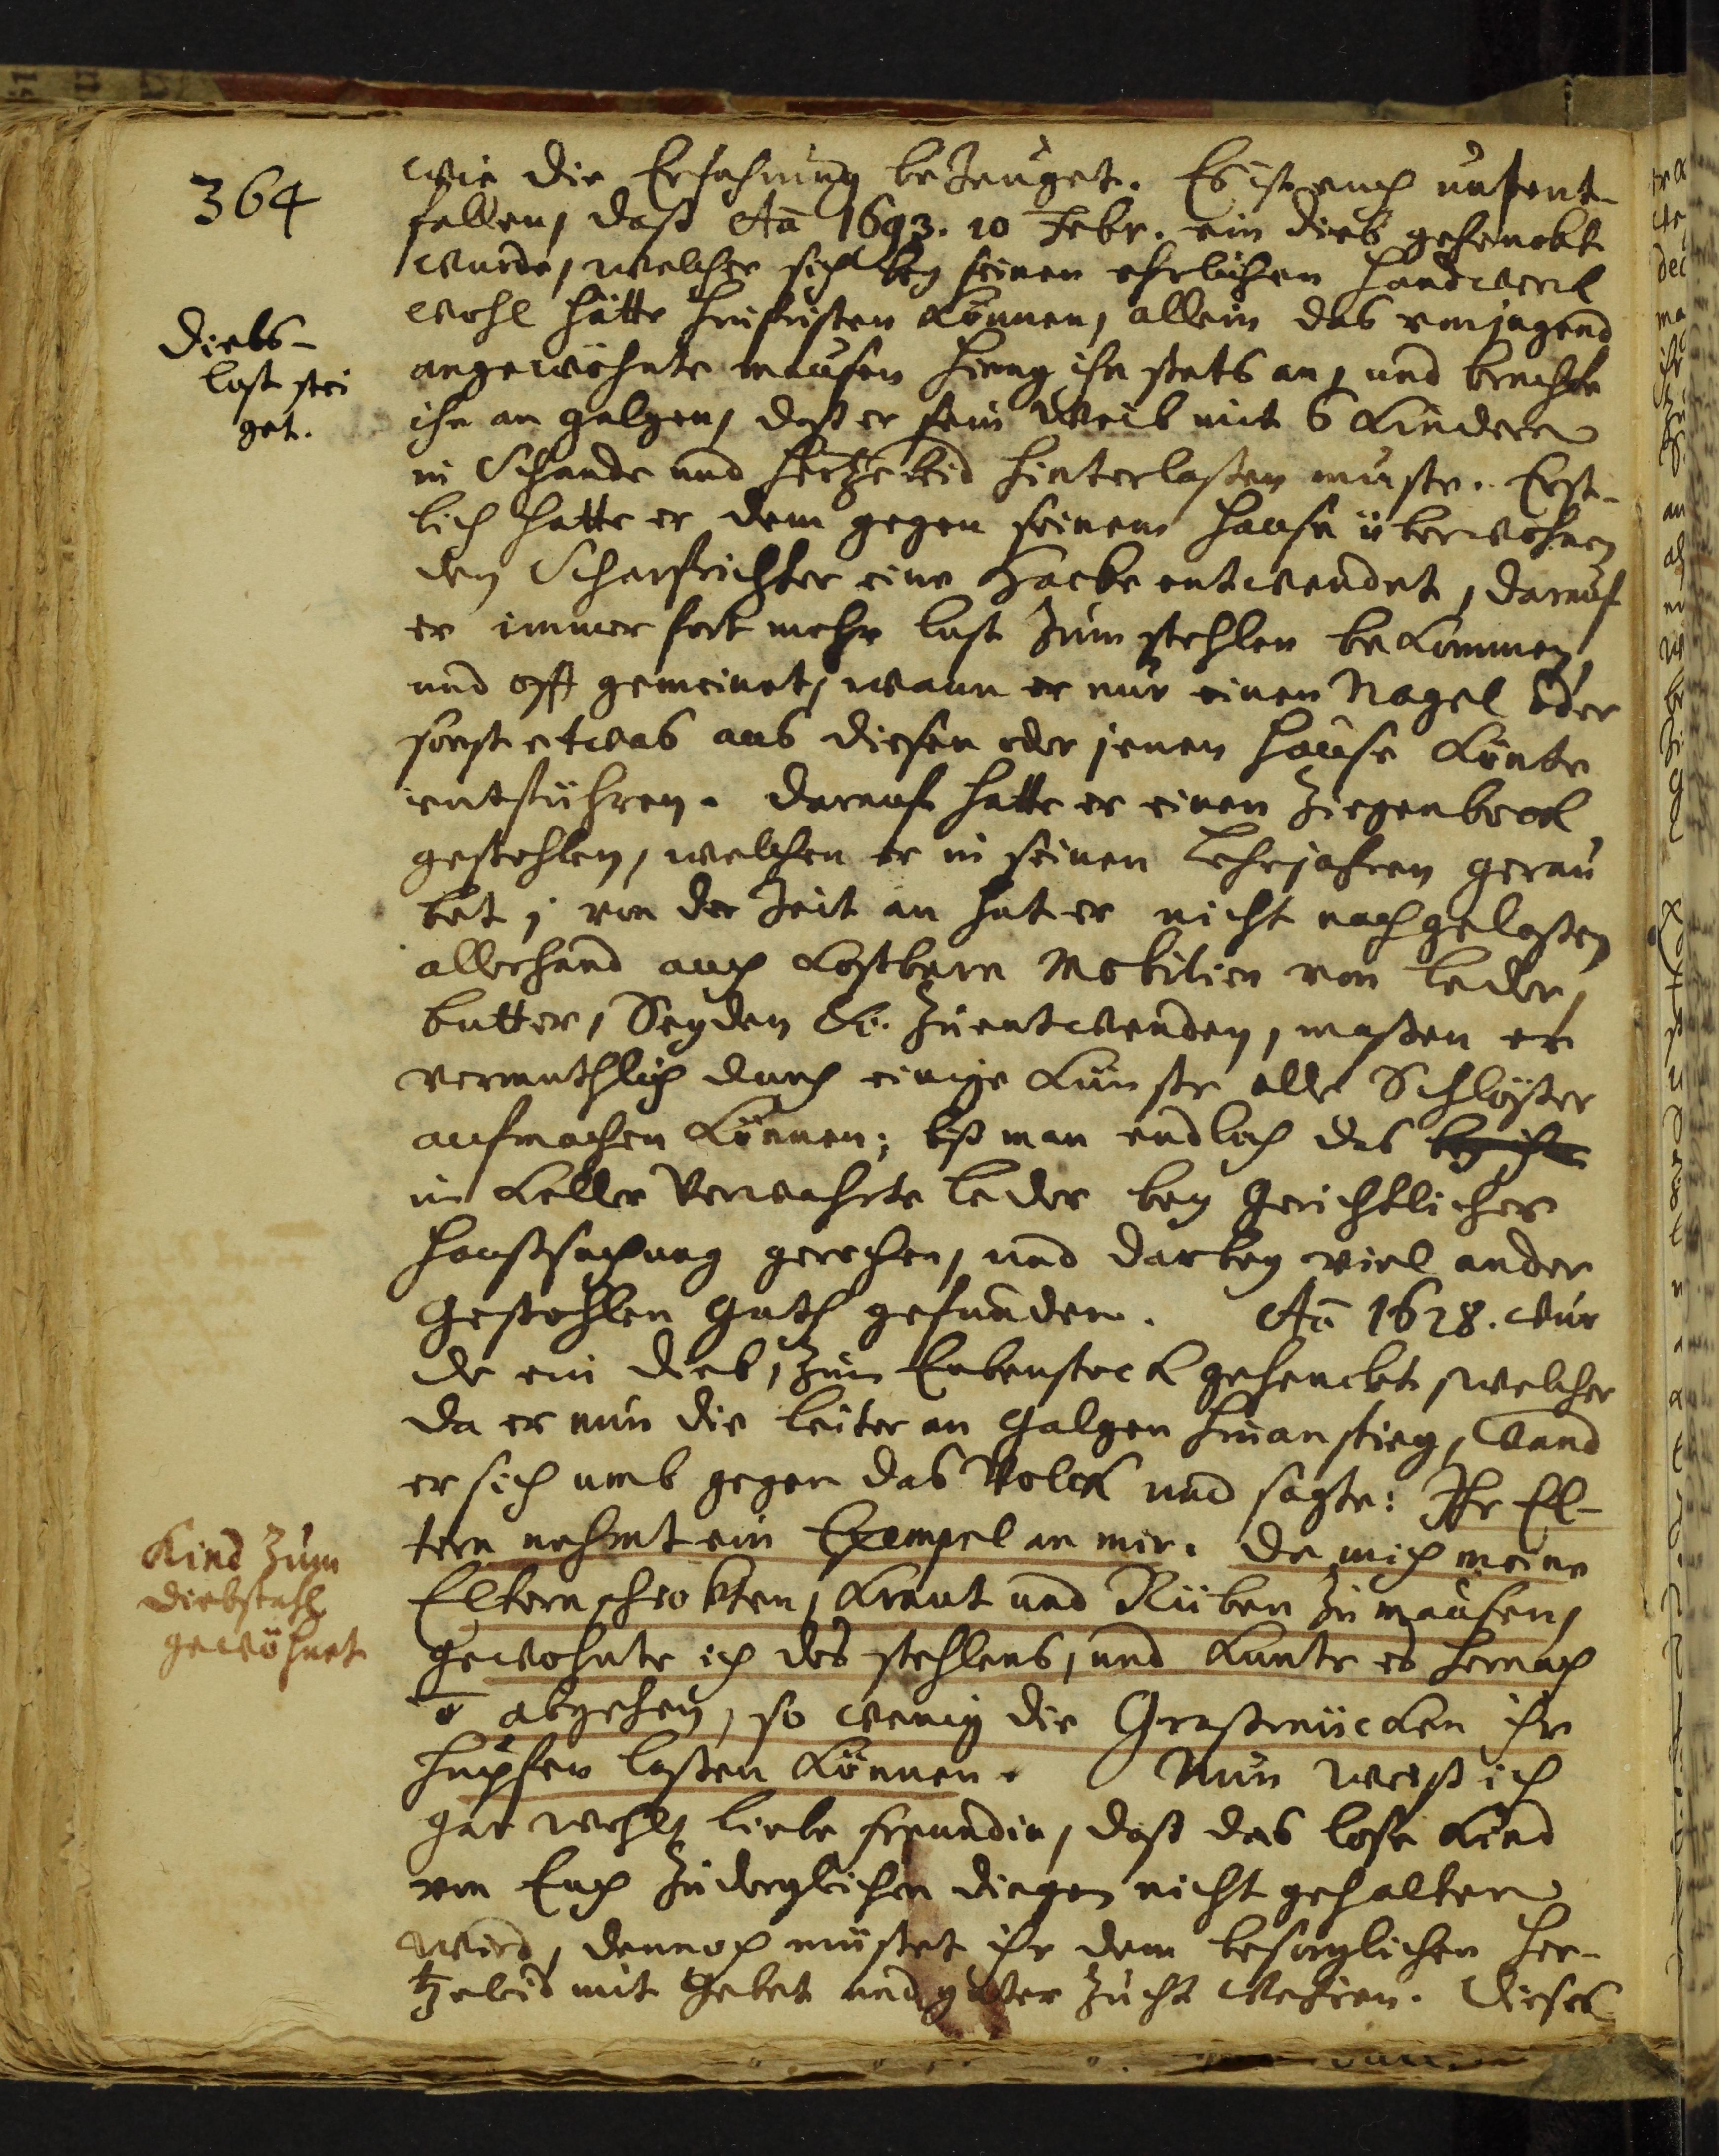 364
wie die Erfahrung bezeuget. Es ist auch unent-
fallen, daß Aō 1693. 10 Febr. ein dieb gehenckt
wurde, welcher sich bey seinen ehrlichen Handwerck
wohl hätte hinfristen können, allein das von jugend
angewöhnte mausen hieng ihn stets an, und brachte
ihn an galgen, daß er sein Weib mit 6 Kindern
in Schande und Hertzeleid hinterlaßen muste. Erst-
lich hatte er dem gegen seinem Hause über wohnen
den Scharfrichter eine Hacke entwendet, darauf
er immer fort mehr lust zum stehlen bekommen,
und offt gemeinet, wann er nur einen Nagel oder
sonst etwas aus diesen oder jenen Hause könte
entführen. Darauf hatte er einen Ziegenbock
gestohlen, welchen er in seinen Lehrjahren gerau
bet; von der Zeit an hat er nicht nachgelaßen
allerhand auch kostbare Mobilien von leder,
butter, Seyden &c. zu entwenden, maßen er
vermuthlich durch einige Künste alle Schlößer
aufmachen können; biß man endlich das bey ihm
im Keller verwahrte leder bey Gerichtlicher
Haußsuchung gerochen, und darbey viel ander
Gestohlen Guth gefunden. Aō 1628. wur
de ein dieb, zum Eubenstock gehenckt, welcher
da er nun die leiter an Galgen hinan stieg, wand
er sich umb gegen das Volck und sagte: Ihr El-
tern nehmt ein Exempel an mir. Da mich meine
Eltern schickten, Kraut und Rüben zu mausen,
gewohnte ich des stehlens, und kunte es hernach
ō abgehen, so wenig die Graßmücken ihr
hupfen laßen können. Nun weiß ich
gar wohl, liebe freundin, daß das lose Kind
von Euch zu dergleichen dingen nicht gehalten
wird, dennoch müstet ihr dem besorglichen Her-
tzeleid mit Gebet und guter Zucht wehren. Dieses
Diebs-
lust stei
get.
Kind zum
diebstahl
gewöhnet